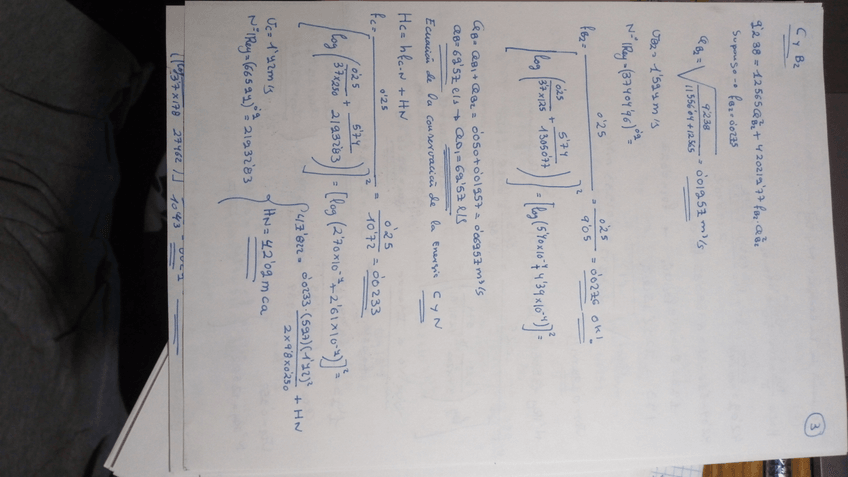 3
C y B2
9'238 = 12565 QB2² + 420219'77 fB2·QB2²
Supuso → fB2=0'0275
QB2 = √(9'238 / (11556'04+12565)) = 0'01957 m³/s
UB2 = 1'59 m/s
NºRey = (37404'96)^0'9 =
fB2 = 0'25 / [log(0'25/(37×125) + 5'74/13050'77)]² = 0'25 / [log(5'40×10⁻⁴ + 4'39×10⁻⁴)]² = 0'25/9'05 = 0'0276 OK!
QB = QB1 + QB2 = 0'050 + 0'01957 = 0'06957 m³/s
QB = 69'57 l/s → QCD1 = 69'57 l/s
Ecuación de la conservación de la energía C y N
HC = hfC-N + HN
fC = 0'25 / [log(0'25/(37×250) + 5'74/21932'83)]² = 0'25 / [log(2'70×10⁻⁴ + 2'61×10⁻⁴)]² = 0'25/10'72 = 0'0233
UC = 1'42 m/s
NºRey = (66592)^0'9 = 21932'83
47'822 = 0'0233 · (597)(1'42)² / (2×9'8×0'250) + HN
HN = 42'09 mca
37×178 27462 10'43